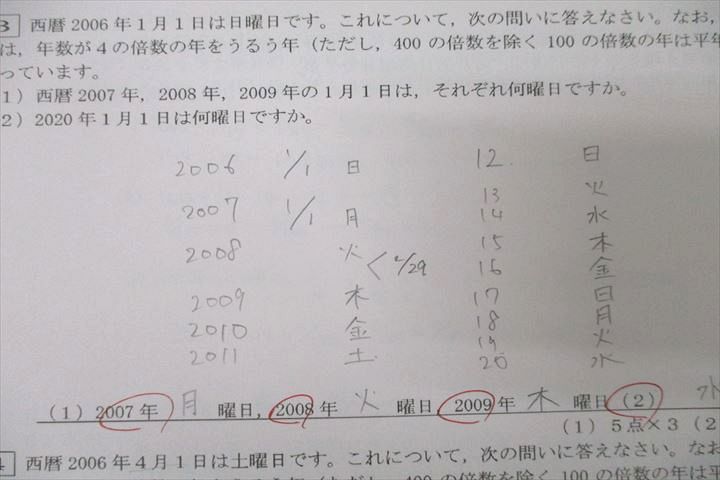 3 西暦 2006 年 1 月 1 日は日曜日です。これについて，次の問いに答えなさい。なお，
は，年数が 4 の倍数の年をうるう年（ただし，400 の倍数を除く 100 の倍数の年は平年
っています。
1）西暦 2007 年，2008 年，2009 年の 1 月 1 日は，それぞれ何曜日ですか。
2）2020 年 1 月 1 日は何曜日ですか。
2006 1/1 日
2007 1/1 月
2008 火 < 2/29
2009 木
2010 金
2011 土
12. 日
13 火
14 水
15 木
16 金
17 日
18 月
19 火
20 水
（1）2007 年 月 曜日，2008 年 火 曜日，2009 年 木 曜日（2） 水
（1）5 点×3（2）
4 西暦 2006 年 4 月 1 日は土曜日です。これについて，次の問いに答えなさい。なお
年数が 4 の倍数の年をうるう年（ただし，400 の倍数を除く 100 の倍数の年は平